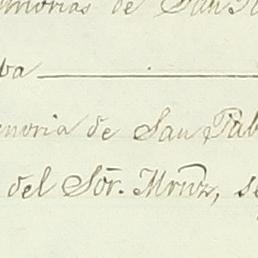 emorias de San P
va
emoria de San Pab
del Sor. Mrnz, se